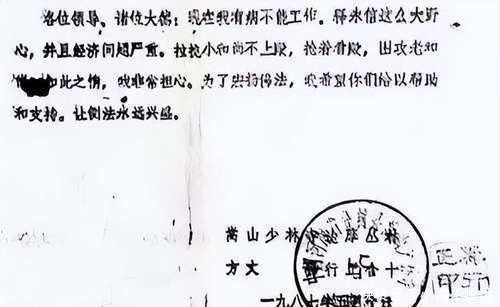 各位领导。诸位大德:现在我有病不能工作。释永信这么大野
心,并且经济问题严重。拉拢小和尚不上殿,抢着看殿,围攻老和
如此之情,我非常担心。为了宏扬佛法,我希望你们给以帮助
和支持。让佛法永远兴盛。
嵩山少林寺
方丈 行正
一九八七年